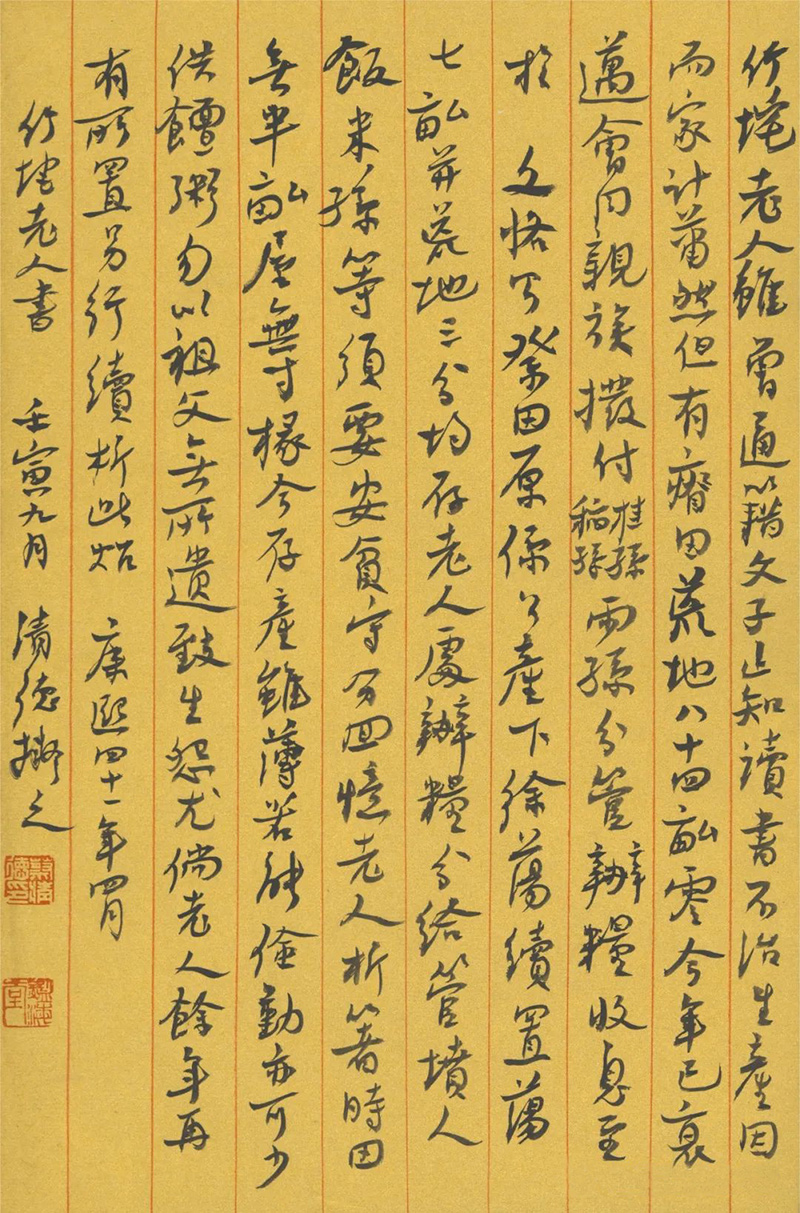 竹垞老人雖曾通籍父子止知讀書不治生產因
而家計蕭然但有瘠田荒地八十四畝零今年已衰
邁會同親族撥付桂孫稻孫兩孫分管辦糧收息至
於文恪公祭田原係公產下徐蕩續置蕩
七畝并荒地三分均存老人處辦糧分給管墳人
飯米孫等須要安貧守分回憶老人析箸時田
無半畝屋無寸椽今存產雖薄若能儉勤亦可少
供饘粥勿以祖父無所遺致生怨尤倘老人餘年再
有所置另行續析此炤康熙四十一年四月
竹垞老人書 壬寅九月 清德擬之